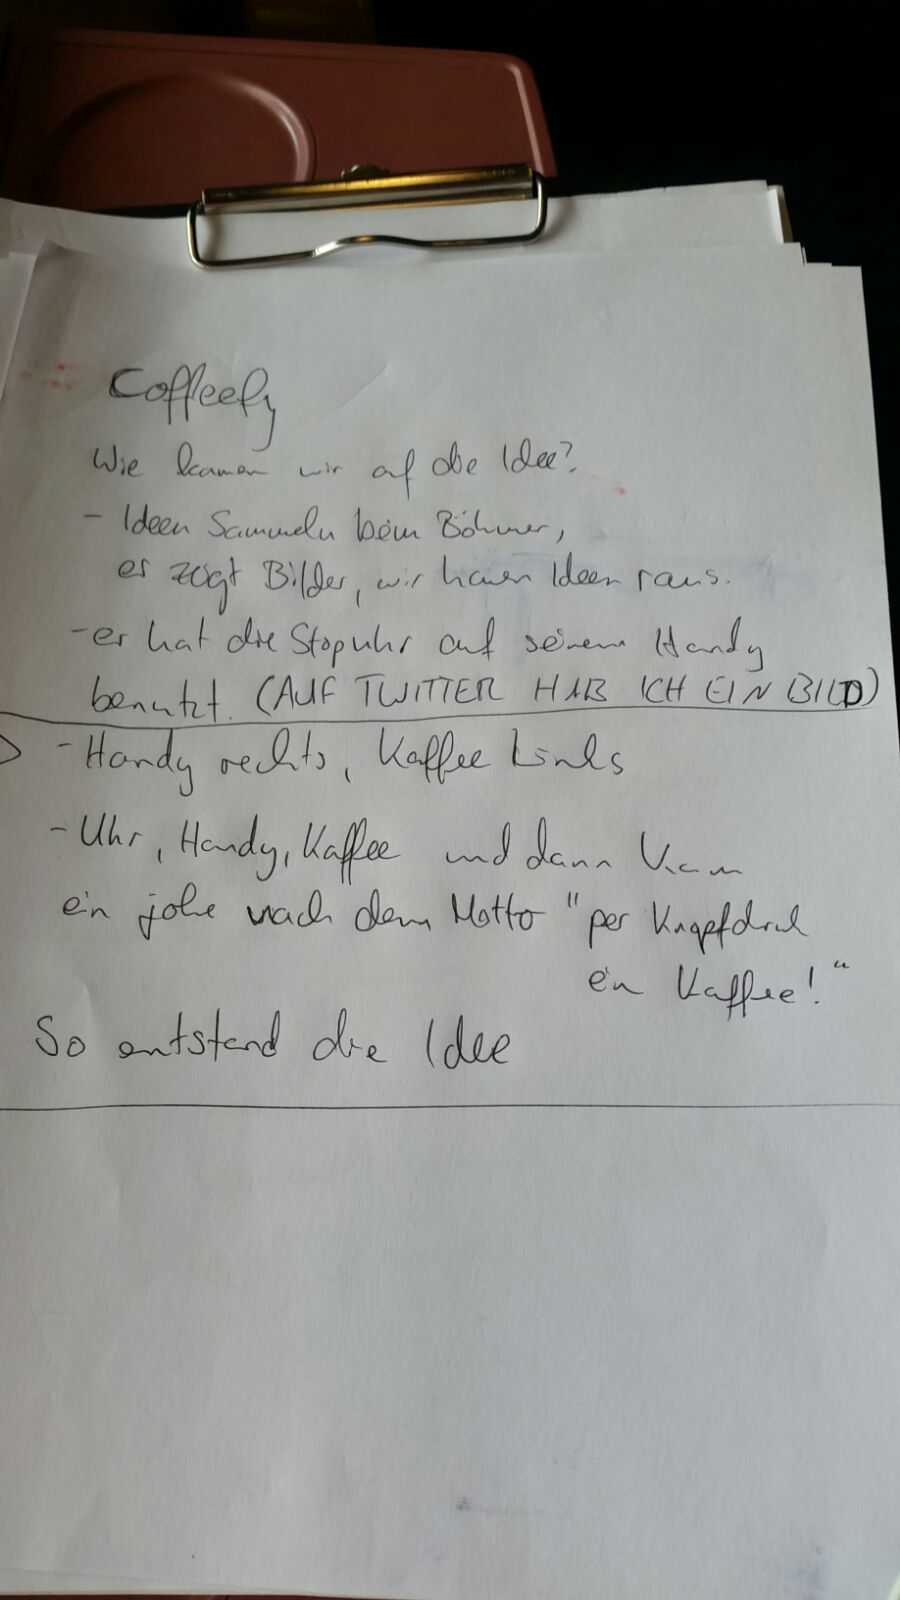 Coffeefy
Wie kamen wir auf die Idee?
- Ideen Sammeln beim Böhmer,
er zeigt Bilder, wir hauen Ideen raus.
- er hat die Stopuhr auf seinem Handy
benutzt. (AUF TWITTER HAB ICH EIN BILD)
- Handy rechts, Kaffee Links
- Uhr, Handy, Kaffee und dann kam
ein joke nach dem Motto "per Knopfdruck
ein Kaffee!"
So entstand die Idee